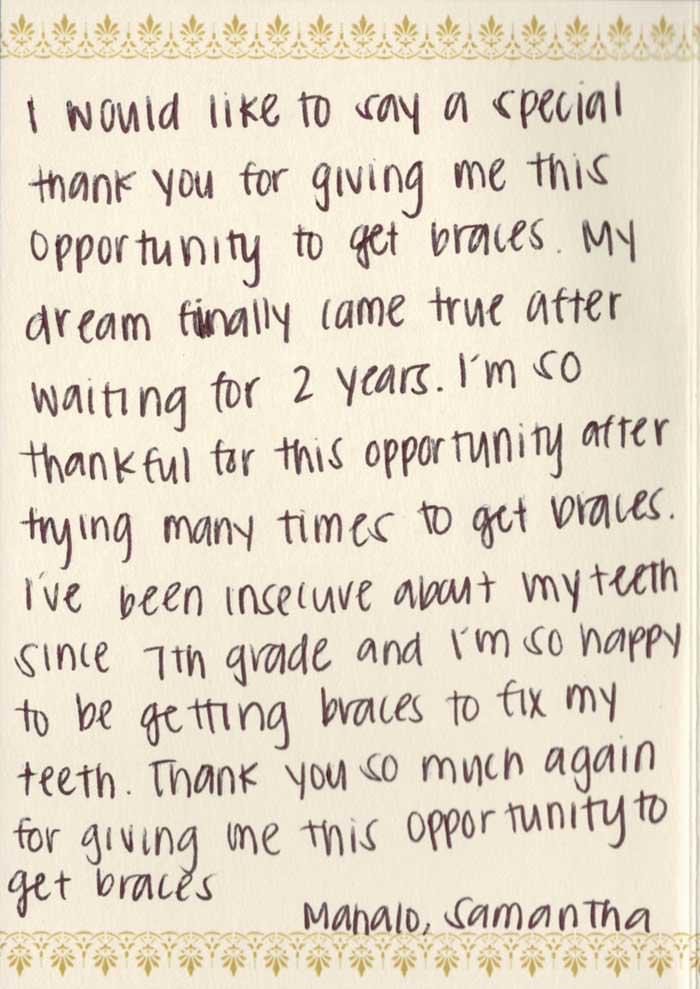 I would like to say a special
thank you for giving me this
opportunity to get braces. My
dream finally came true after
waiting for 2 years. I'm so
thankful for this opportunity after
trying many times to get braces.
I've been insecure about my teeth
since 7th grade and I'm so happy
to be getting braces to fix my
teeth. Thank you so much again
for giving me this opportunity to
get braces
Mahalo, Samantha